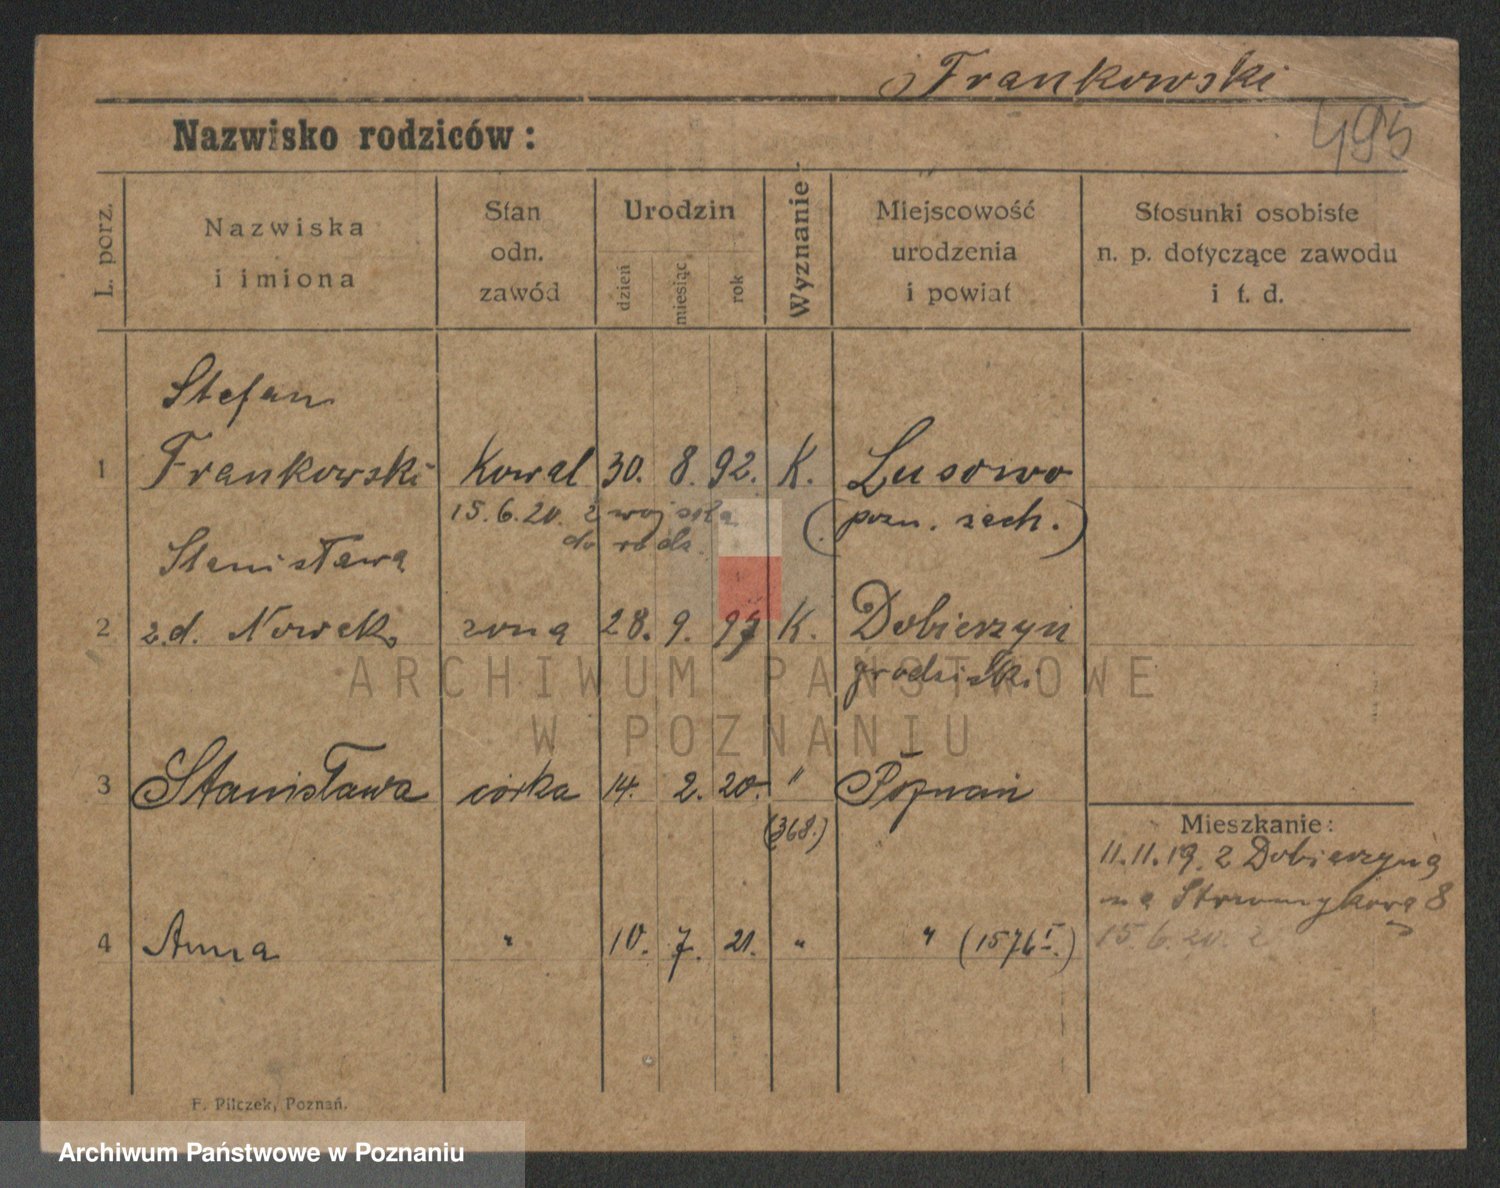 Frankowski
495
Nazwisko rodziców:
L. porz.
Nazwiska
i imiona
Stan
odn.
zawód
Urodzin
dzień
miesiąc
rok
Wyznanie
Miejscowość
urodzenia
i powiat
Stosunki osobiste
n. p. dotyczące zawodu
i t. d.
Stefan
1 Frankowski Kowal 30. 8. 92. K. Lusowo
15.6.20. z wojska (pozn. zach.)
do rodz.
Stanisława
2 z.d. Nowak żona 28. 9. 97 K. Dobieżyn
grodziski
ARCHIWUM PAŃSTWOWE
W POZNANIU
3 Stanisława córka 14. 2. 20. " Poznań
(368.)
Mieszkanie:
11.11.19. z Dobieżyna
na Strumykowa 8
4 Anna " 10. 7. 21. " " (1576 I.)
15.6.20. z
F. Pilczek, Poznań.
Archiwum Państwowe w Poznaniu